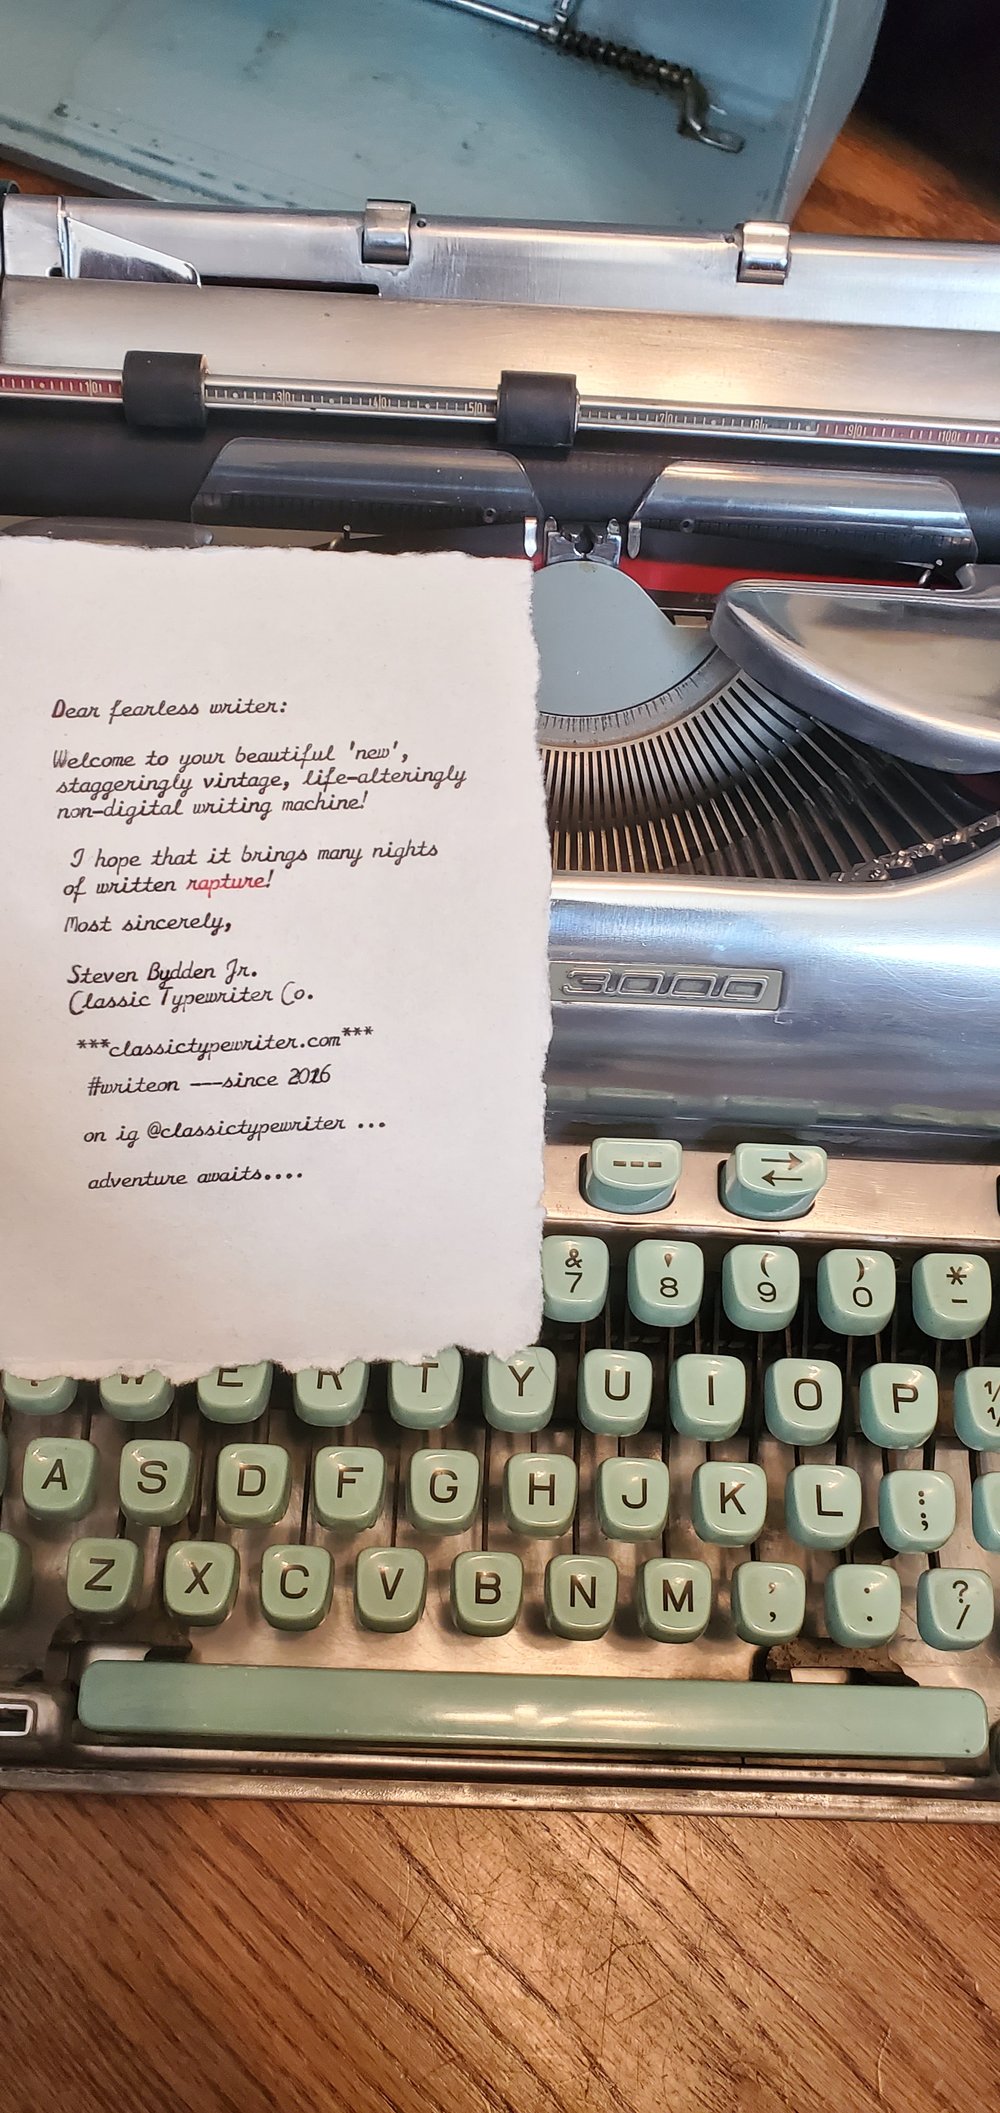 10 30 40 50 70 80 90 100
Dear fearless writer:
Welcome to your beautiful 'new',
staggeringly vintage, life-alteringly
non-digital writing machine!
I hope that it brings many nights
of written rapture!
Most sincerely,
Steven Bydden Jr.
Classic Typewriter Co.
***classictypewriter.com***
#writeon ---since 2016
on ig @classictypewriter ...
adventure awaits....
3000
---
& 7 ' 8 ( 9 ) 0 * -
W E R T Y U I O P
A S D F G H J K L : ;
Z X C V B N M , . ? /